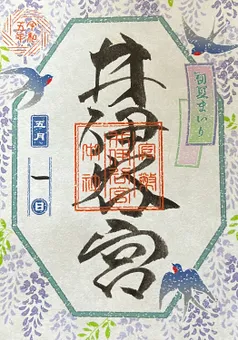 井伊谷宮
夏まいり
官幣
井伊谷宮
中社
令和
五年
五月
一
日